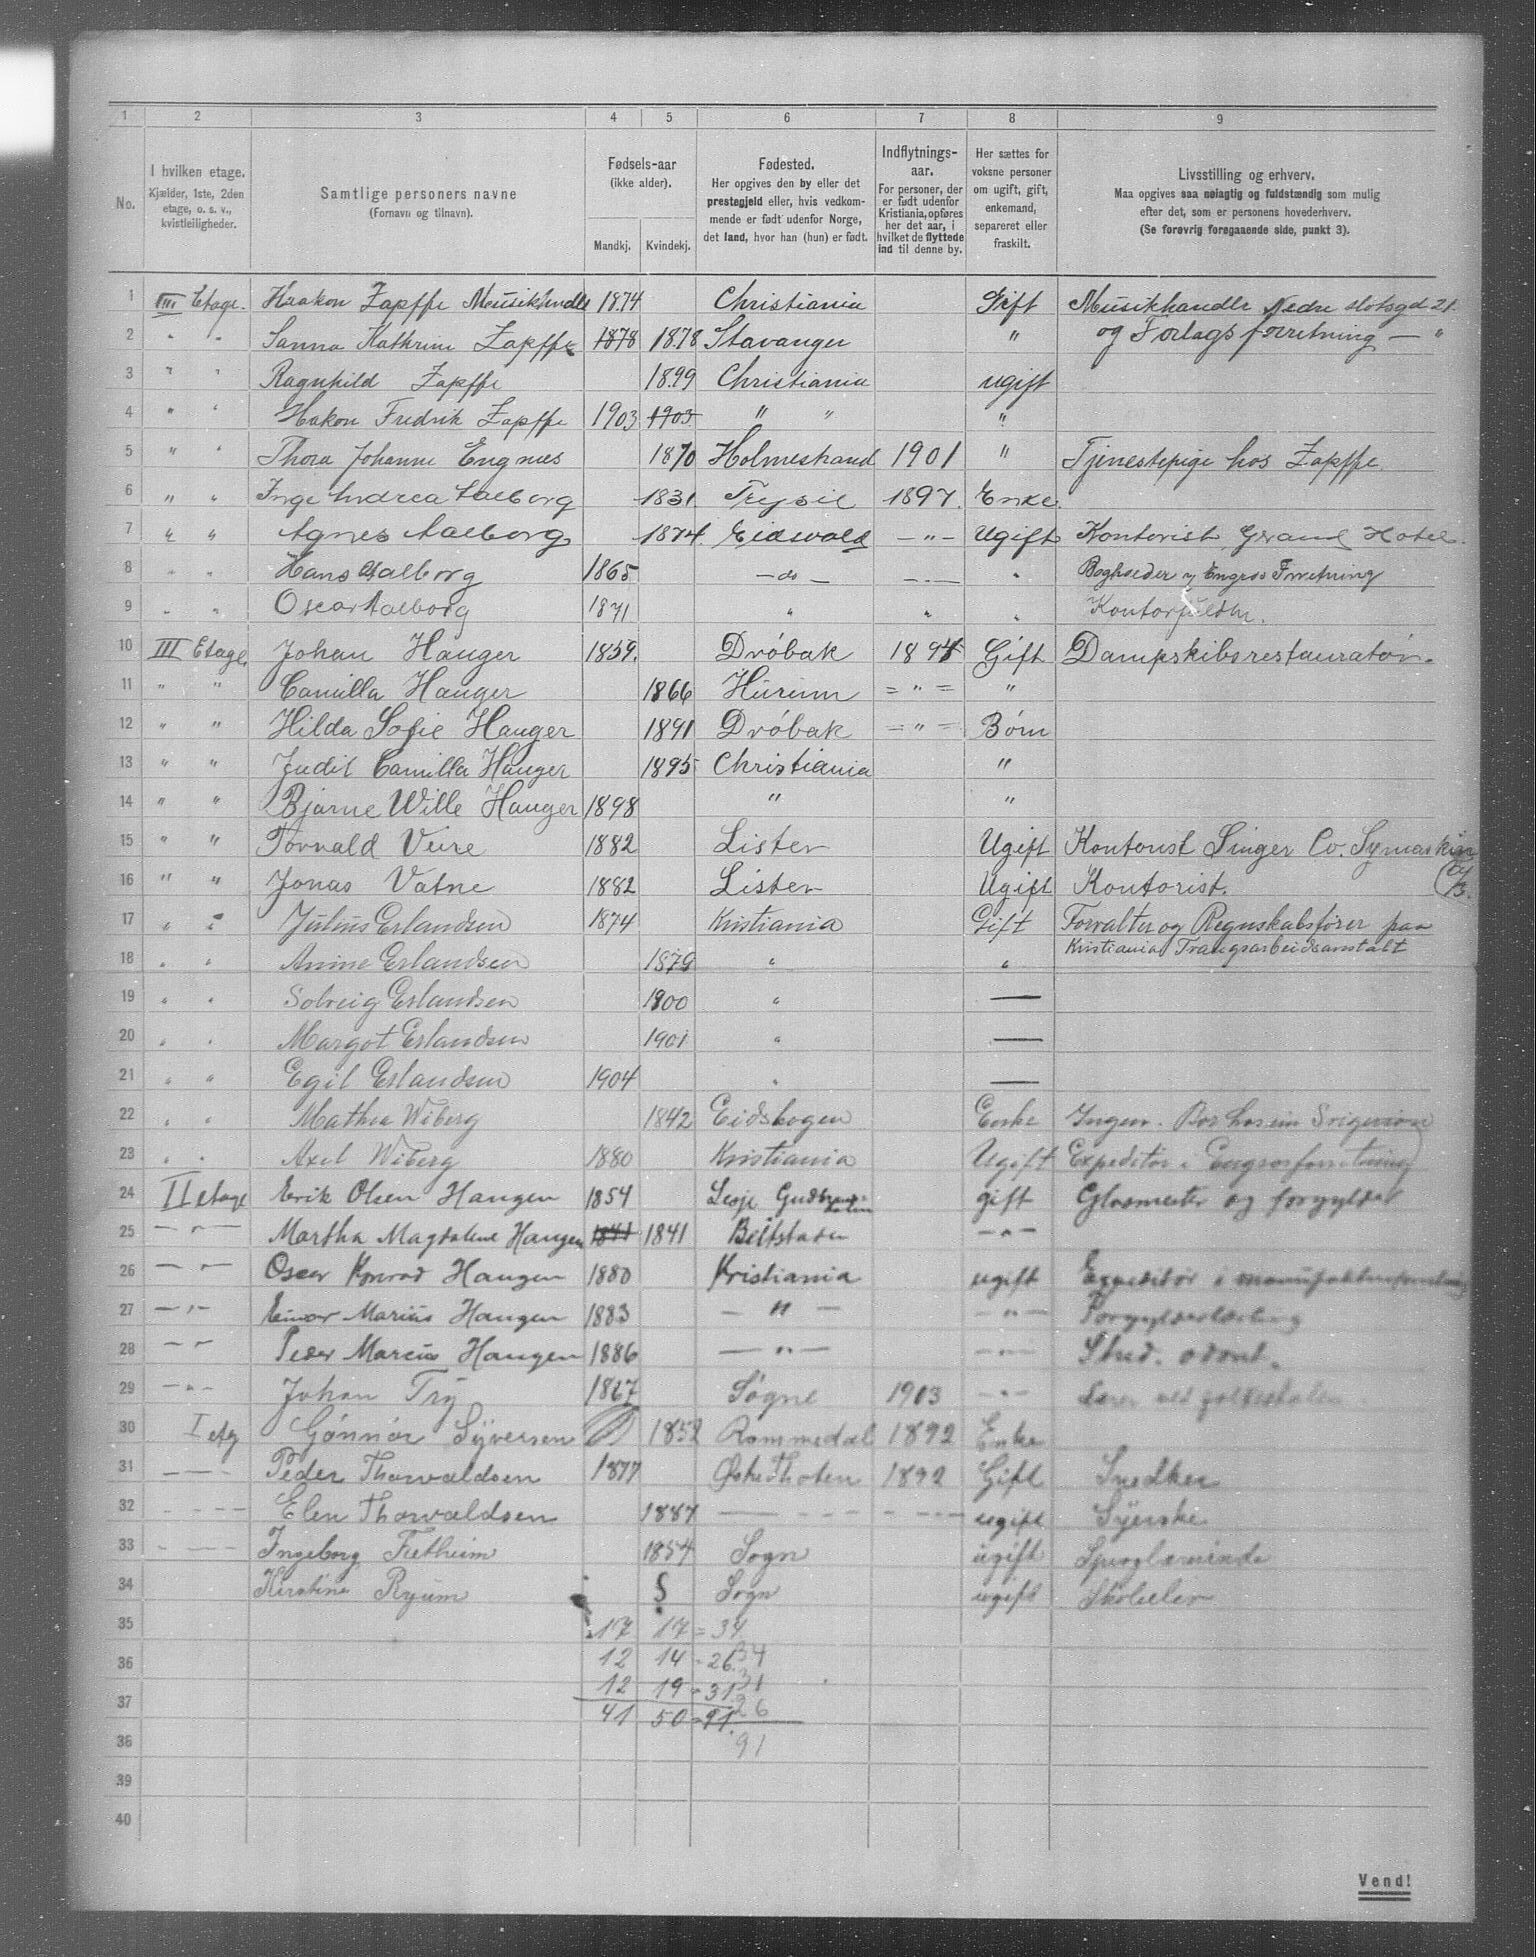 1 2 3 4 5 6 7 8 9
No.
I hvilken etage.
Kjælder, 1ste, 2den
etage, o. s. v.,
kvistleiligheder.
Samtlige personers navne
(Fornavn og tilnavn).
Fødsels-aar
(ikke alder).
Mandkj. Kvindekj.
Fødested.
Her opgives den by eller det
prestegjeld eller, hvis vedkom-
mende er født udenfor Norge,
det land, hvor han (hun) er født.
Indflytnings-
aar.
For personer, der
er født udenfor
Kristiania, opføres
her det aar, i
hvilket de flyttede
ind til denne by.
Her sættes for
voksne personer
om ugift, gift,
enkemand,
separeret eller
fraskilt.
Livsstilling og erhverv.
Maa opgives saa nøiagtig og fuldstændig som mulig
efter det, som er personens hovederhverv.
(Se forøvrig foregaaende side, punkt 3).
1 III Etage. Haakon Zapffe Musikhndl 1874 Christiania Gift Musikhandle Nedre slotsgd 21
2 " " Sanna Kathrine Zapffe 1878 1878 Stavanger " og Forlagsforretning — "
3 " " Ragnhild Zapffe 1899 Christiania ugift
4 " " Hakon Fredrik Zapffe 1903 1903 " " "
5 " " Thora Johanne Engnæs 1870 Holmestrand 1901 " Tjenestepige hos Zapffe
6 " " Inge Andrea Aalborg 1831 Trysil 1897. Enke
7 " " Agnes Aalborg 1874 Eidsvold — " — Ugift Kontorist Grand Hotel.
8 " " Hans Aalborg 1865 — do — — " — " Bogholder Engros Forretning
9 " " Oscar Aalborg 1871 " " "
10 III Etage Johan Hauger 1859. Drøbak 1894 Gift Dampskibsrestauratør.
11 " " Camilla Hauger 1866 Hurum = " = "
12 " " Hilda Sofie Hauger 1891 Drøbak = " = Børn
13 " " Judit Camilla Hauger 1895 Christiania "
14 " " Bjarne Wille Hauger 1898 " "
15 " " Torvald Veire 1882 Lister Ugift Kontorist Singer Co. Symaskin
16 " " Jonas Vatne 1882 Lister Ugift Kontorist.
17 " " Julius Erlandsen 1874 Kristiania Gift Forvalter og Regnskabsfører paa
Kristiania Trangsarbeidsanstalt
18 " " Anine Erlandsen 1879 " "
19 " " Solveig Erlandsen 1900 " —
20 " " Margot Erlandsen 1901 " —
21 " " Egil Erlandsen 1904 " —
22 " " Mathea Wiberg 1842 Eidskogen Enke Ingen. Bor hos sin Svigersøn
23 " " Axel Wiberg 1880 Kristiania Ugift Expeditør i Engrosforretning
24 II etage Erik Olsen Haugen 1854 Lesje Gudbrandsdalen gift Glasmester og forgylder
25 — " — Martha Magdalene Haugen 1841 1841 Beitstaden — " —
26 — " — Oscar Konrad Haugen 1880 Kristiania ugift Expeditør i manufakturforretning
27 — " — Einar Marius Haugen 1883 — " — — " — Forgylderlærling
28 — " — Peder Marcus Haugen 1886 — " — — " — Stud. odont.
29 — " — Johan Try 1867 Søgne 1903 — " — Lærer ved folkeskolen
30 I etg Gunnor Syversen 1852 Rommedal 1892 Enke
31 — — — Peder Thorvaldsen 1877 Østre Thoten 1892 Gift Snedker
32 — — — Elen Thorvaldsen 1887 — — — — — — ugift Syerske
33 — — — Ingeborg Fretheim 1854 Sogn ugift
34 Kirstine Ryum § Sogn ugift Skoleelev
35 17 17 = 34
36 12 14 - 26 34
12 19 - 31 31
37 41 50 - 91. 26
38 91
39
40
Vend!